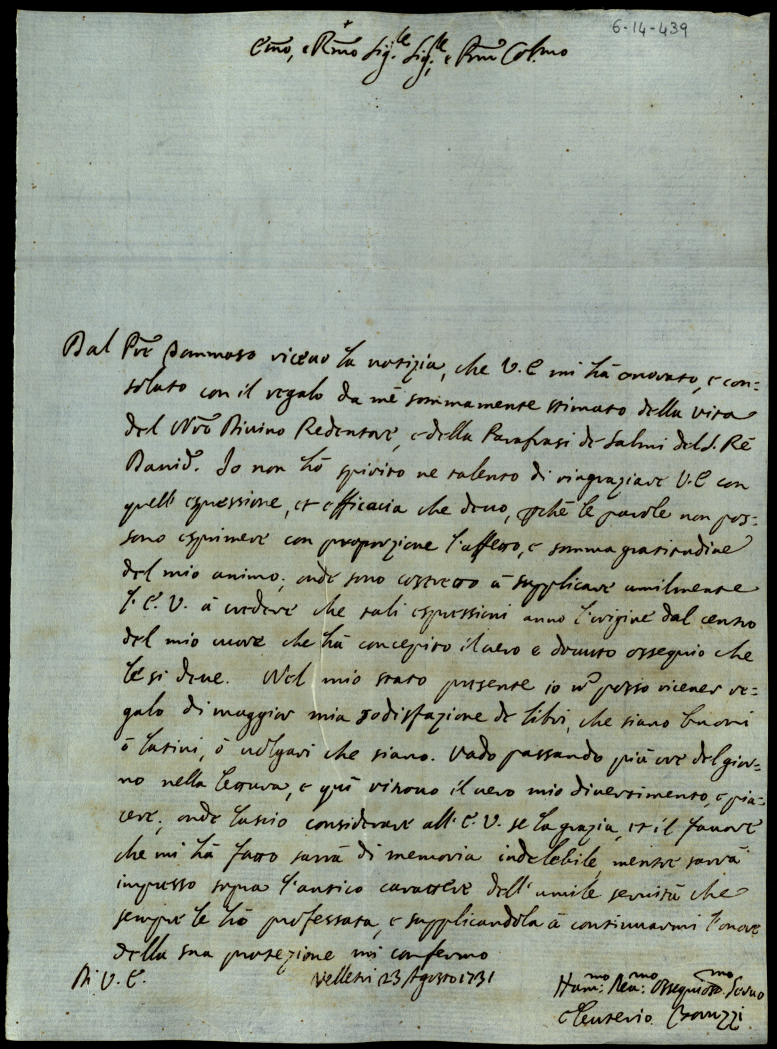 6-14-439
+
Emo, e Rmo Sig.re Sig.re e Pron Colmo
Dal Pre Tommaso riceuo la notizia, che V.E mi hà onorato, e con=
solato con il regalo da mè sommamente stimato della vita
del Nro Diuino Redentore, e della Parafrasi de Salmi del S. Rè
Dauid. Io non hò spirito ne talento di ringraziare V.E con
quell'espressione, et efficacia che deuo, pchè le parole non pos=
sono esprimere con proporzione l'affetto, e somma gratitudine
del mio animo; onde sono costretto à supplicare umilmente
l'E.V. à credere che tali espressioni anno l'origine dal centro
del mio cuore che hà concepito il uero e douuto ossequio che
le si deue. Nel mio stato presente io n posso riceuer re=
galo di maggior mia sodisfazione de libri, che siano buoni
ò latini, ò uolgari che siano. Vado passando più ore del gior=
no nella lettura, e quì ritrouo il uero mio diuertimento, e pia=
cere; onde lascio considerare all'E.V. se la grazia, et il fauore
che mi hà fatto sarrà di memoria indelebile, mentre sarrà
impresso sopra l'antico carattere dell'umile seruitù che
sempre le hò professata, e supplicandola à continuarmi l'onore
della sua protezione mi confermo
Di V.E. Velletri 23 Agosto 1731
Hum.mo Deu.mo Ossequioss.mo Seruo
Eleuterio